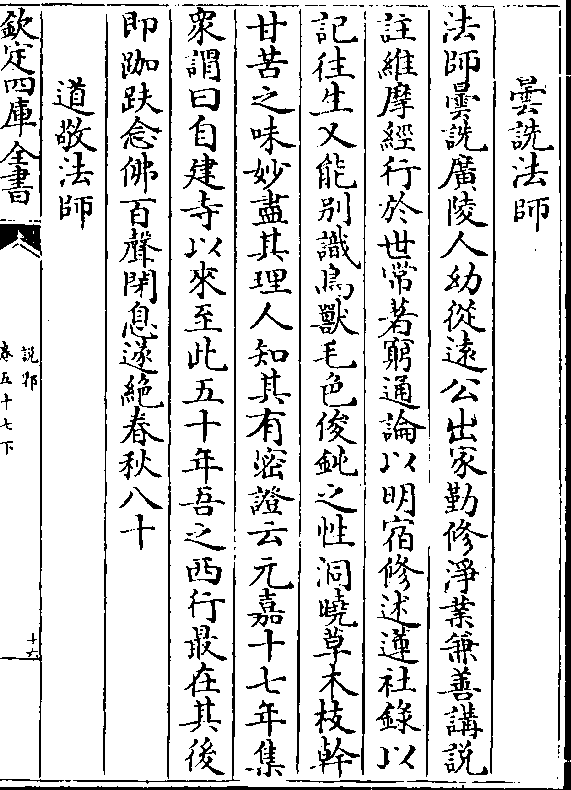 曇詵法師
法師曇詵廣陵人幼從遠公出家勤修淨業兼善講説
註維摩經行於世常著窮通論以明宿修述蓮社錄以
記往生又能别識鳥獸毛色俊鈍之性洞曉草木枝幹
甘苦之味妙盡其理人知其有密證云元嘉十七年集
衆謂曰自建寺以來至此五十年吾之西行最在其後
即跏趺念佛百聲閉息遂絶春秋八十
道敬法師
欽定四庫全書
説郛
卷五十七下
十六